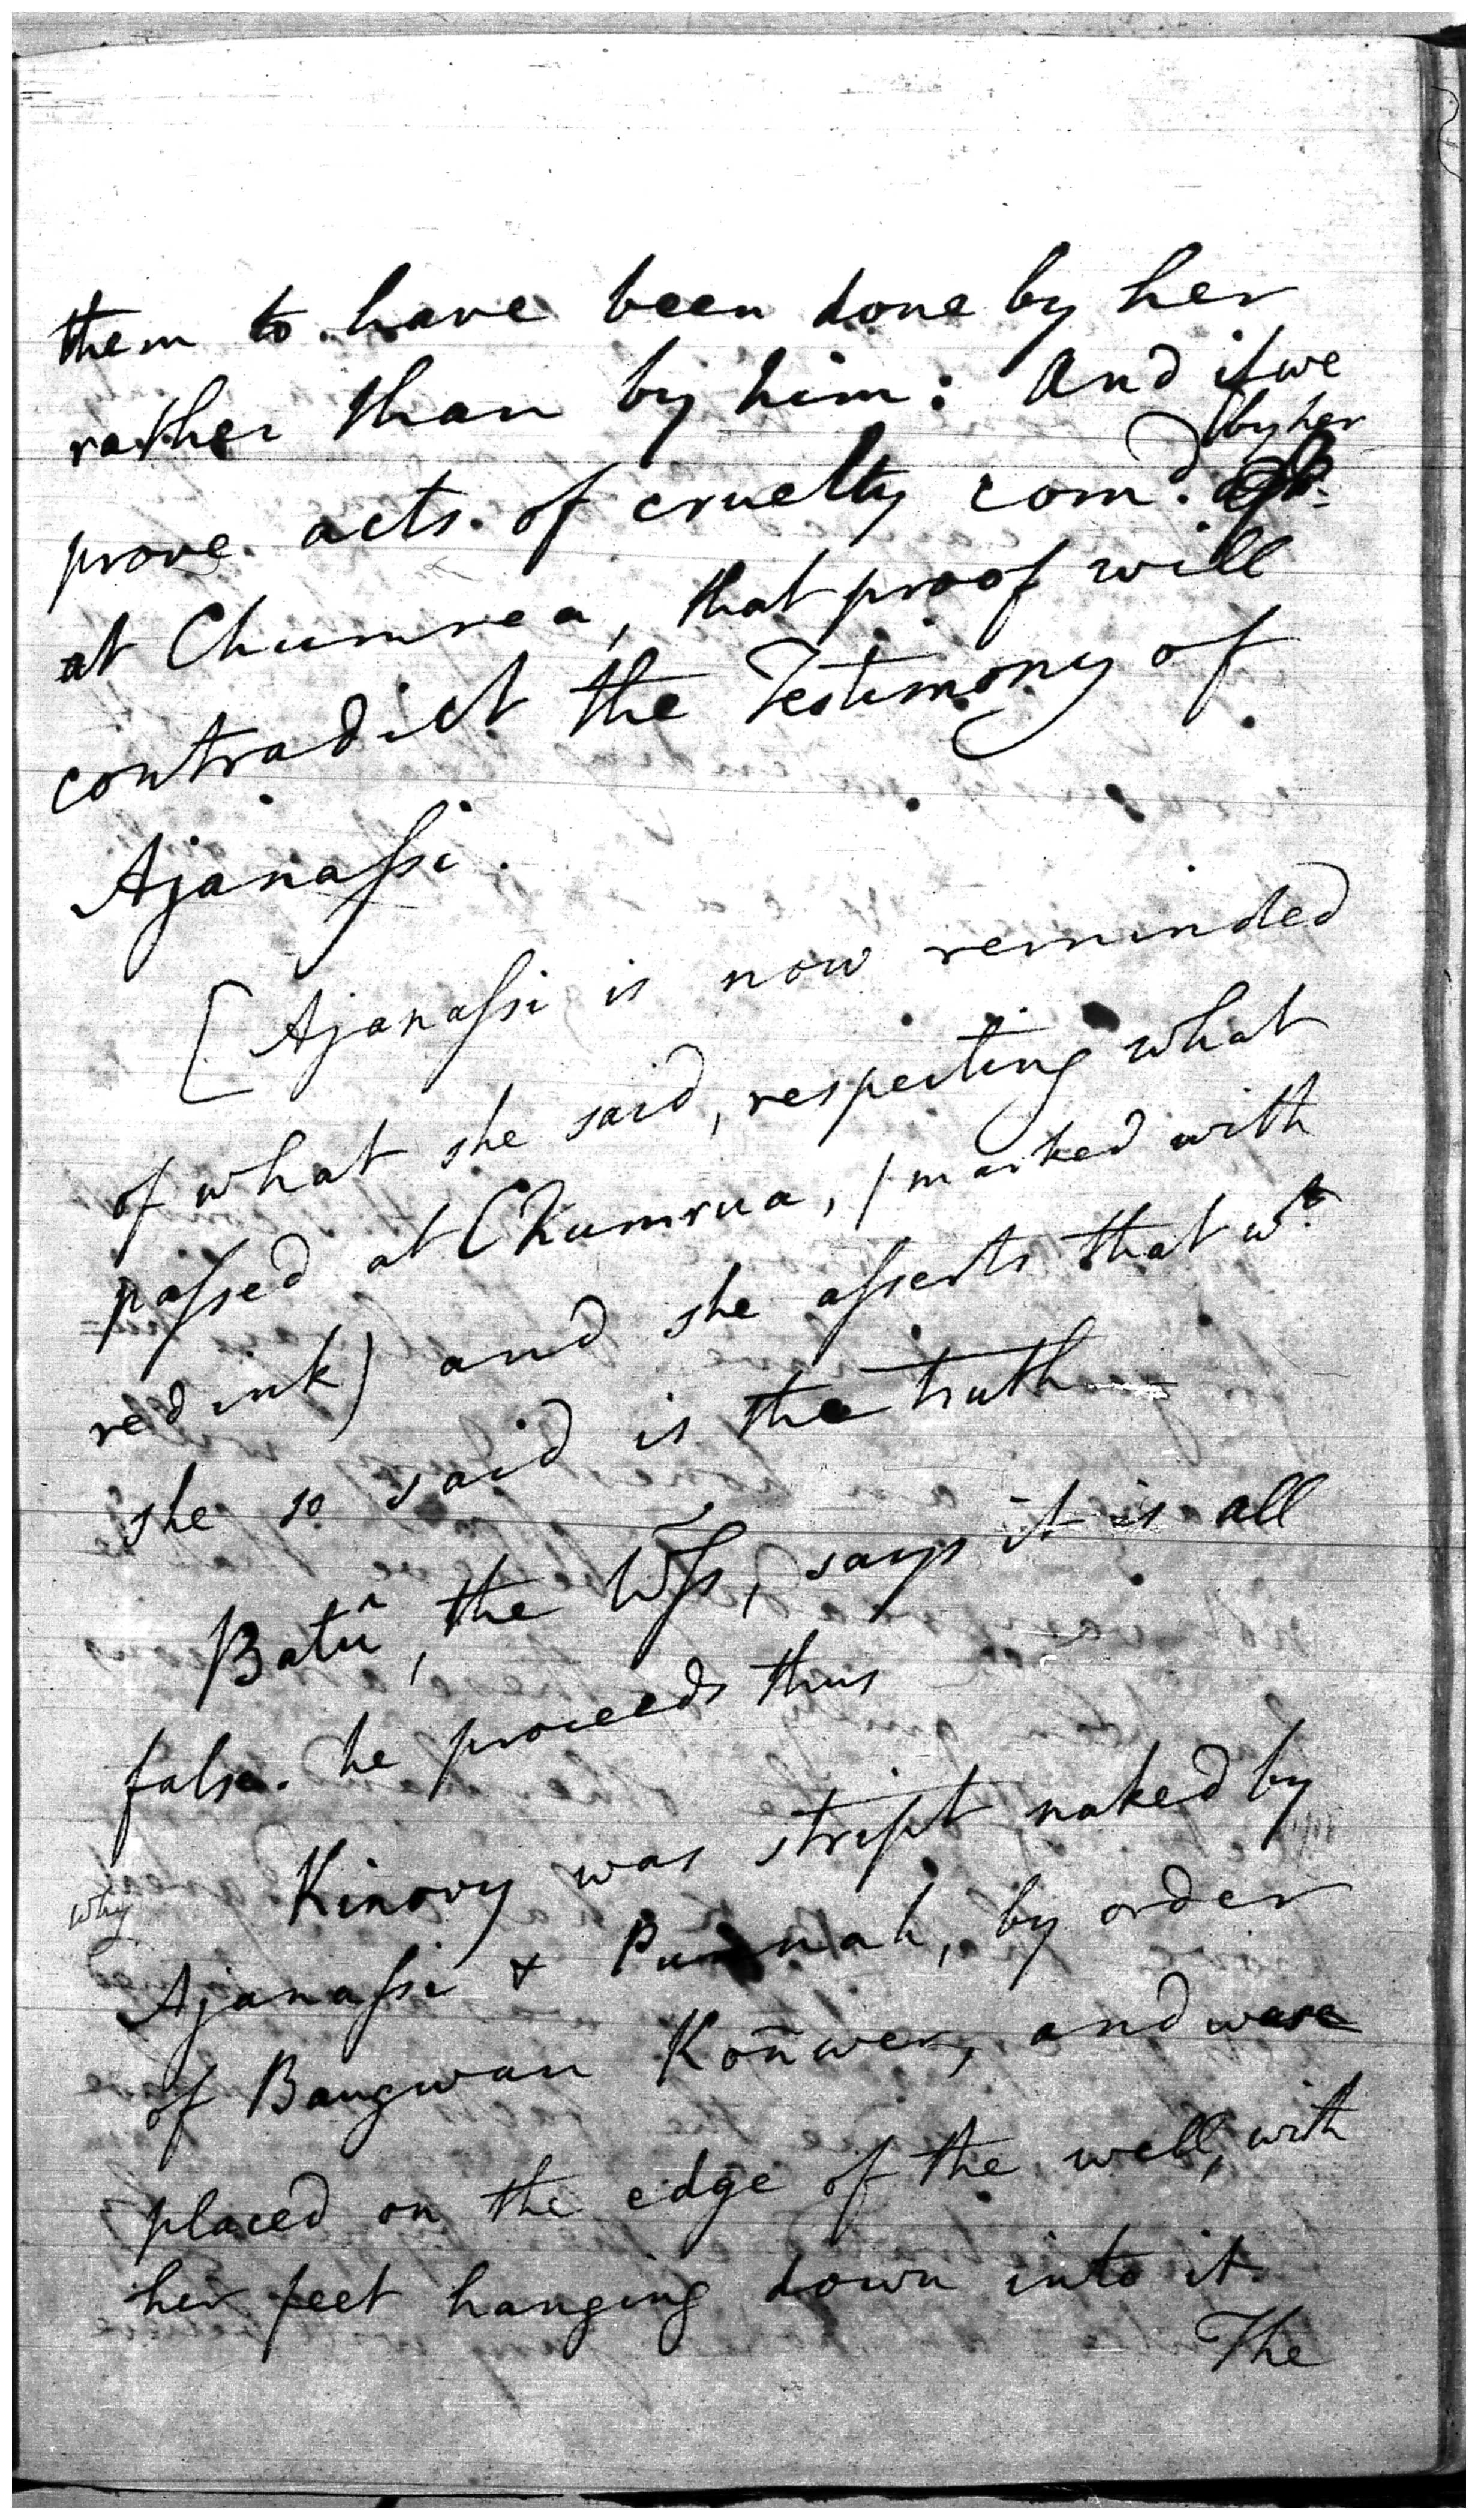 them to have been done by her
rather than by him: And if we
by her
prove acts of cruelty com.d
at Chumrea, that proof will
contradict the Testimony of
Ajanassi.
[Ajanassi is now reminded
of what she said, respecting what
passed at Chumrua, (marked with
red ink) and she asserts that wt.
she so said is the truth
Batû, the Wss, says it is all
false. he proceeds thus
Kinory was stript naked by
why
Ajanassi & Punnah, by order
of Baugwan Koñwer, and was
placed on the edge of the well, with
her feet hanging down into it.
The